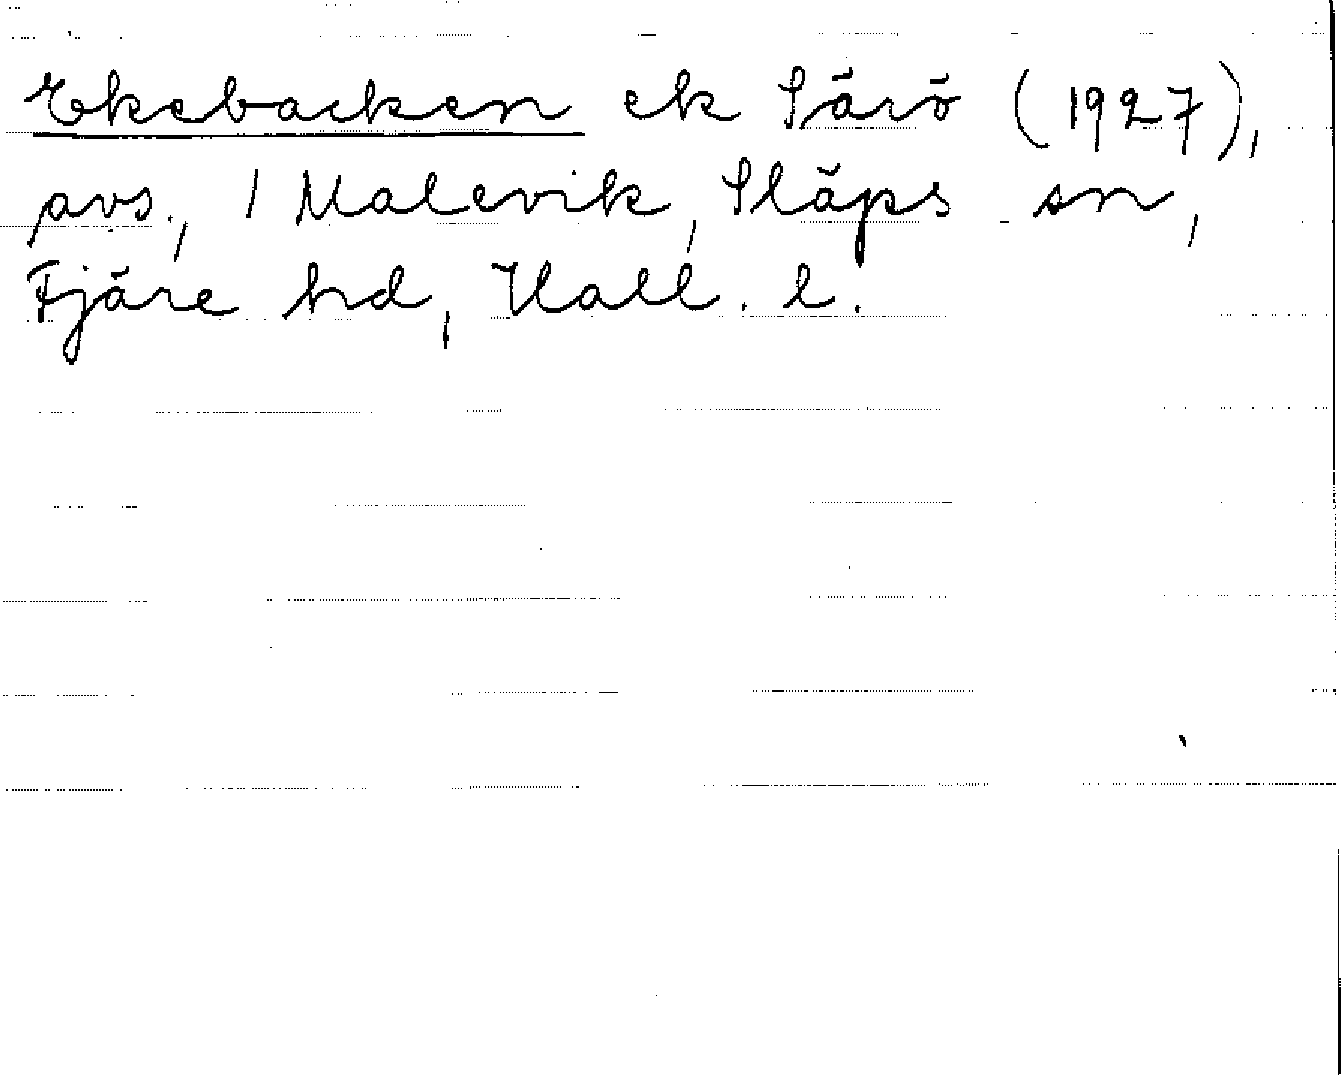 Ekebacken ek Särö (1927),
avs., 1 Malevik, Släps sn,
Fjäre hd, Hall. l.